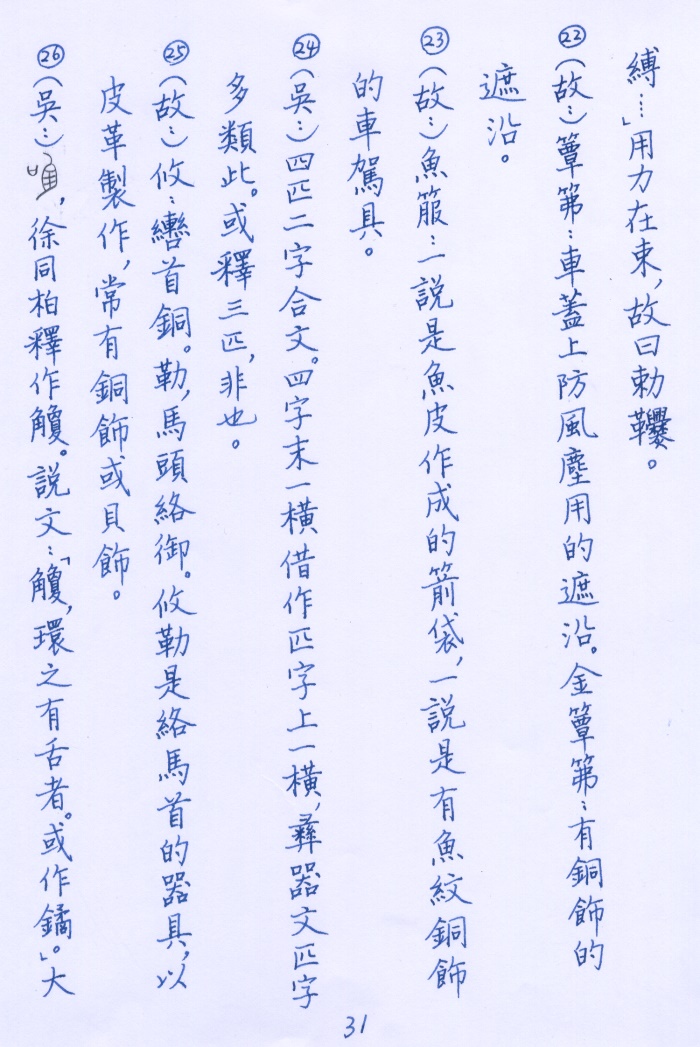 縛…」用力在束，故曰勅鞻。
㉒（故：）簟笰：車蓋上防風塵用的遮沿。金簟笰：有銅飾的
遮沿。
㉓（故：）魚箙：一說是魚皮作成的箭袋，一說是有魚紋銅飾
的車駕具。
㉔（吳：）四匹二字合文。四字末一橫借作匹字上一橫，彝器文匹字
多類此。或釋三匹，非也。
㉕（故：）攸：轡首銅。勒，馬頭絡御。攸勒是絡馬首的器具，以
皮革製作，常有銅飾或貝飾。
㉖（吳：），徐同柏釋作觼。說文：「觼，環之有舌者。或作鐍。」大
31